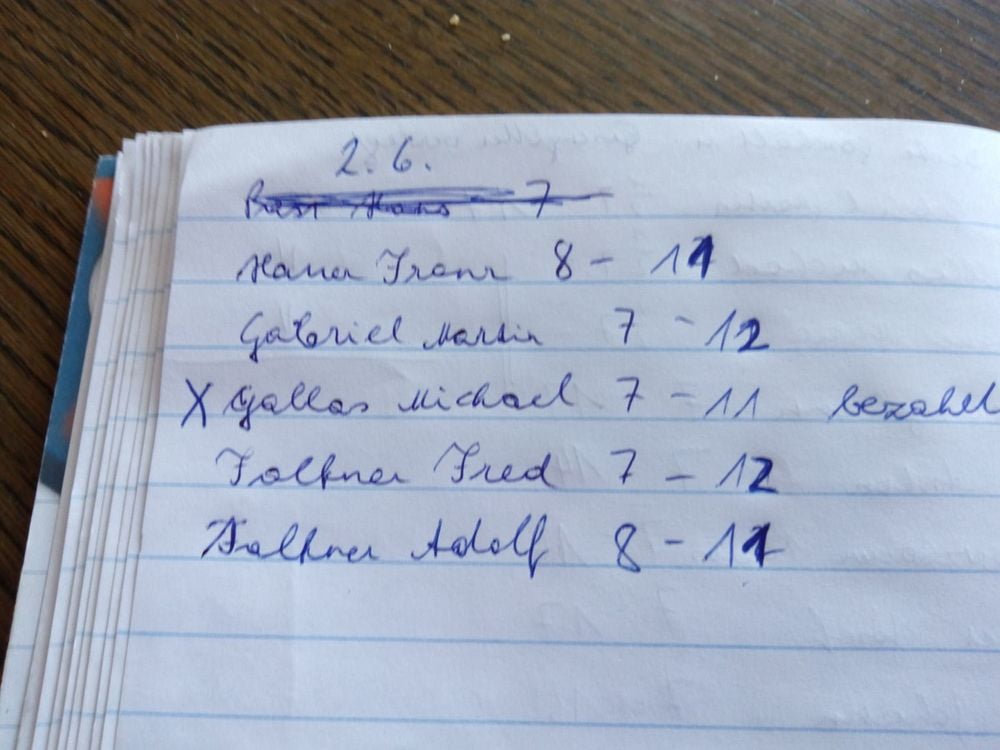 2.6.
Hans 7
Franz 8 - 11
Gabriel Martin 7 - 12
X Gallas Michael 7 - 11 bezahlt
Falkner Fred 7 - 12
Falkner Adolf 8 - 11